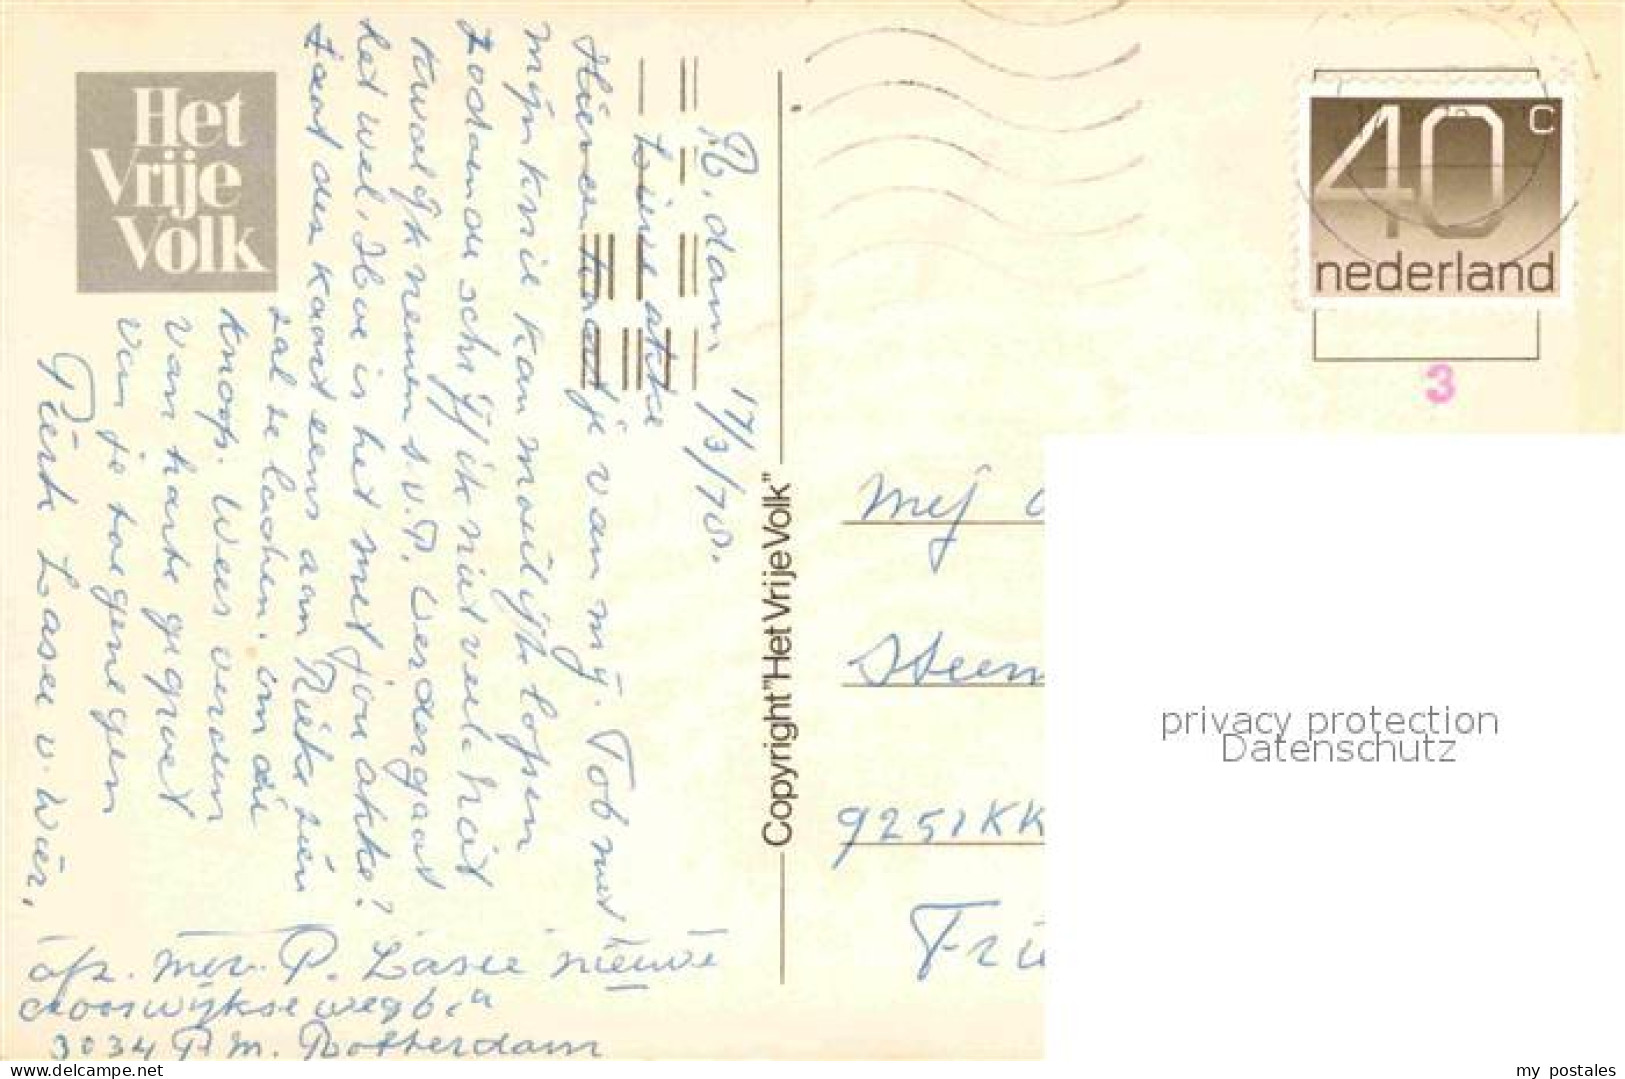 Het
Vrije
Volk
R. dam 17/3/
Lieve akke
Hier een kaartje van mij. Tob met
mijn knie kan moeilijk lopen
zodoende schrijf ik niet veel. Niet
kwalijk nemen s.v.P. Verder gaat
het wel. Hoe is het met jou akke?
Laat den kaart eens aan Rieke zien
zal ze lachen. om die
knoop. Wees verder
van harte gegroet
van je toegenegen
Piet Lasee v. Wier.
afz. mev. P. Lasee nieuwe
crooswijkseweg 6. a
3034 P.M. Rotterdam
Copyright "Het Vrije Volk"
40 c
nederland
3
Mej
Steen
9251KK
Frie
privacy protection
Datenschutz
www.delcampe.net
my_postales